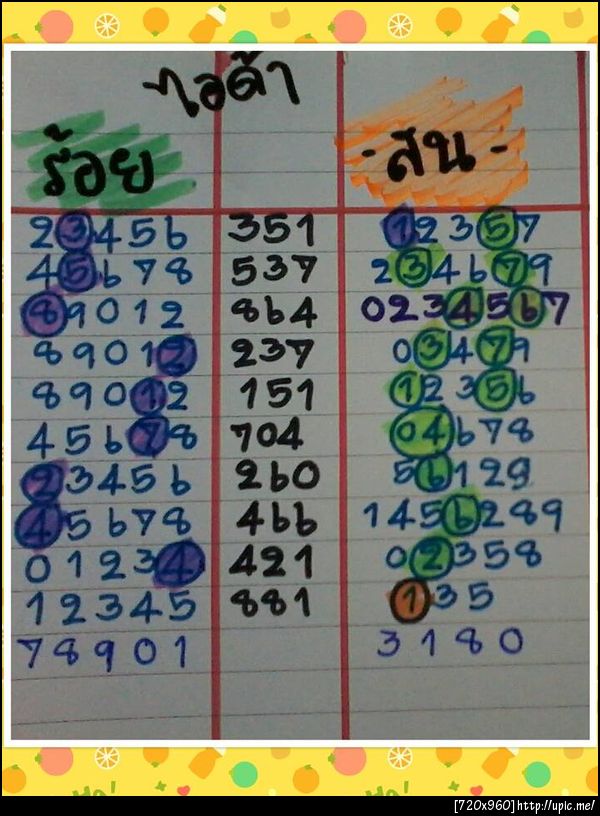 ไอด้า
ร้อย -สน-
23456 351 12357
45678 537 234679
89012 864 0234567
89012 237 03479
89012 151 12356
45678 704 04678
23456 260 56129
45678 466 1456289
01234 421 02358
12345 881 135
78901 3180
[720x960]http://upic.me/